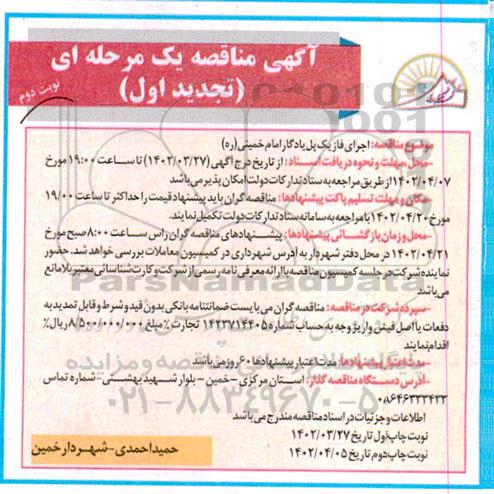 آگهی مناقصه یک مرحله ای
(تجدید اول)
نوبت دوم
موضوع مناقصه: اجرای فاز یک پل یادگار امام خمینی(ره)
-محل،مهلت و نحوه دریافت اسناد: از تاریخ درج آگهی (۱۴۰۲/۰۳/۲۷) تا ساعت ۱۹:۰۰ مورخ
۱۴۰۲/۰۴/۰۷ از طریق مراجعه به ستاد تدارکات دولت امکان پذیر می باشد
-مکان و مهلت تسلیم پاکت پیشنهادها: مناقصه گران باید پیشنهاد قیمت را حداکثر تا ساعت ۱۹/۰۰
مورخ ۱۴۰۲/۰۴/۲۰ با مراجعه به سامانه ستاد تدارکات دولت تکمیل نمایند
-محل و زمان بازگشائی پیشنهادها: پیشنهادهای مناقصه گران راس ساعت ۸:۰۰ صبح مورخ
۱۴۰۲/۰۴/۲۱ در محل دفتر شهردار به آدرس شهرداری در کمیسیون معاملات بررسی خواهد شد. حضور
نماینده شرکت در جلسه کمیسیون مناقصه با ارائه معرفی نامه رسمی از شرکت و کارت شناسائی معتبر بلامانع
می باشد
-سپرده شرکت در مناقصه: مناقصه گران می بایست ضمانتنامه بانکی بدون قید و شرط و قابل تمدید به
دفعات یا اصل فیش واریز وجه به حساب شماره ۱۴۲۳۷۱۴۴۰۵ تجارت٪ مبلغ ۸/۵۰۰/۰۰۰/۰۰۰ ریال٪
اقدام نمایند
-مدت اعتبار پیشنهادها: مدت اعتبار پیشنهادها ۶۰ روز می باشد
-آدرس دستگاه مناقصه گذار: استان مرکزی - خمین - بلوار شهید بهشتی - شماره تماس
۰۸۶۴۶۳۳۳۴۳۳
اطلاعات و جزئیات در اسناد مناقصه مندرج می باشد
نوبت چاپ اول تاریخ ۱۴۰۲/۰۳/۲۷
نوبت چاپ دوم تاریخ ۱۴۰۲/۰۴/۰۵
حمید احمدی-شهردار خمین
ParsNamadData
۰۲۱-۸۸۳۴۹۶۷۰-۵